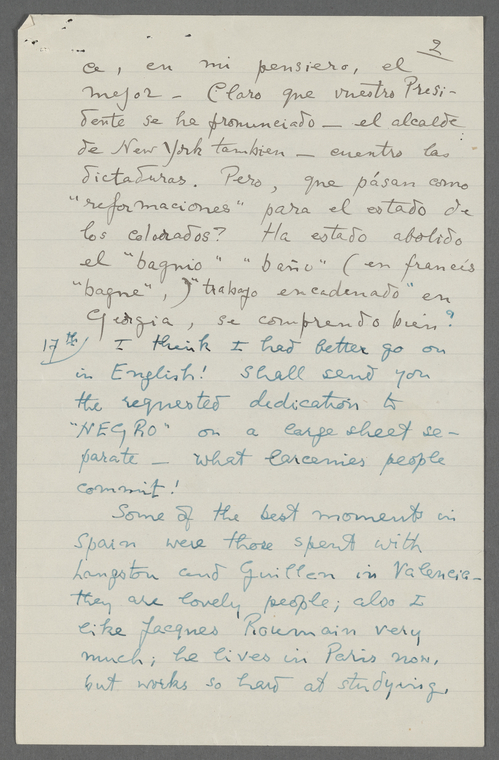 2
ce, en mi pensiero, el
mejor — Claro que vuestro Presi-
dente se ha pronunciado — el alcalde
de New York tambien — cuentro las
dictaduras. Pero, que pásan como
"reformaciones" para el estado de
los colorados? Ha estado abolido
el "bagnio" "baño" (en francés
"bagne", ) "trabajo encadenado" en
Georgia, se comprendo bien?
17th/ I think I had better go on
in English! Shall send you
the requested dedication to
"NEGRO" on a large sheet se-
parate — what larcenies people
commit!
Some of the best moments in
Spain were those spent with
Langston and Guillen in Valencia —
they are lovely people; also I
like Jacques Roumain very
much; he lives in Paris now,
but works so hard at studying,